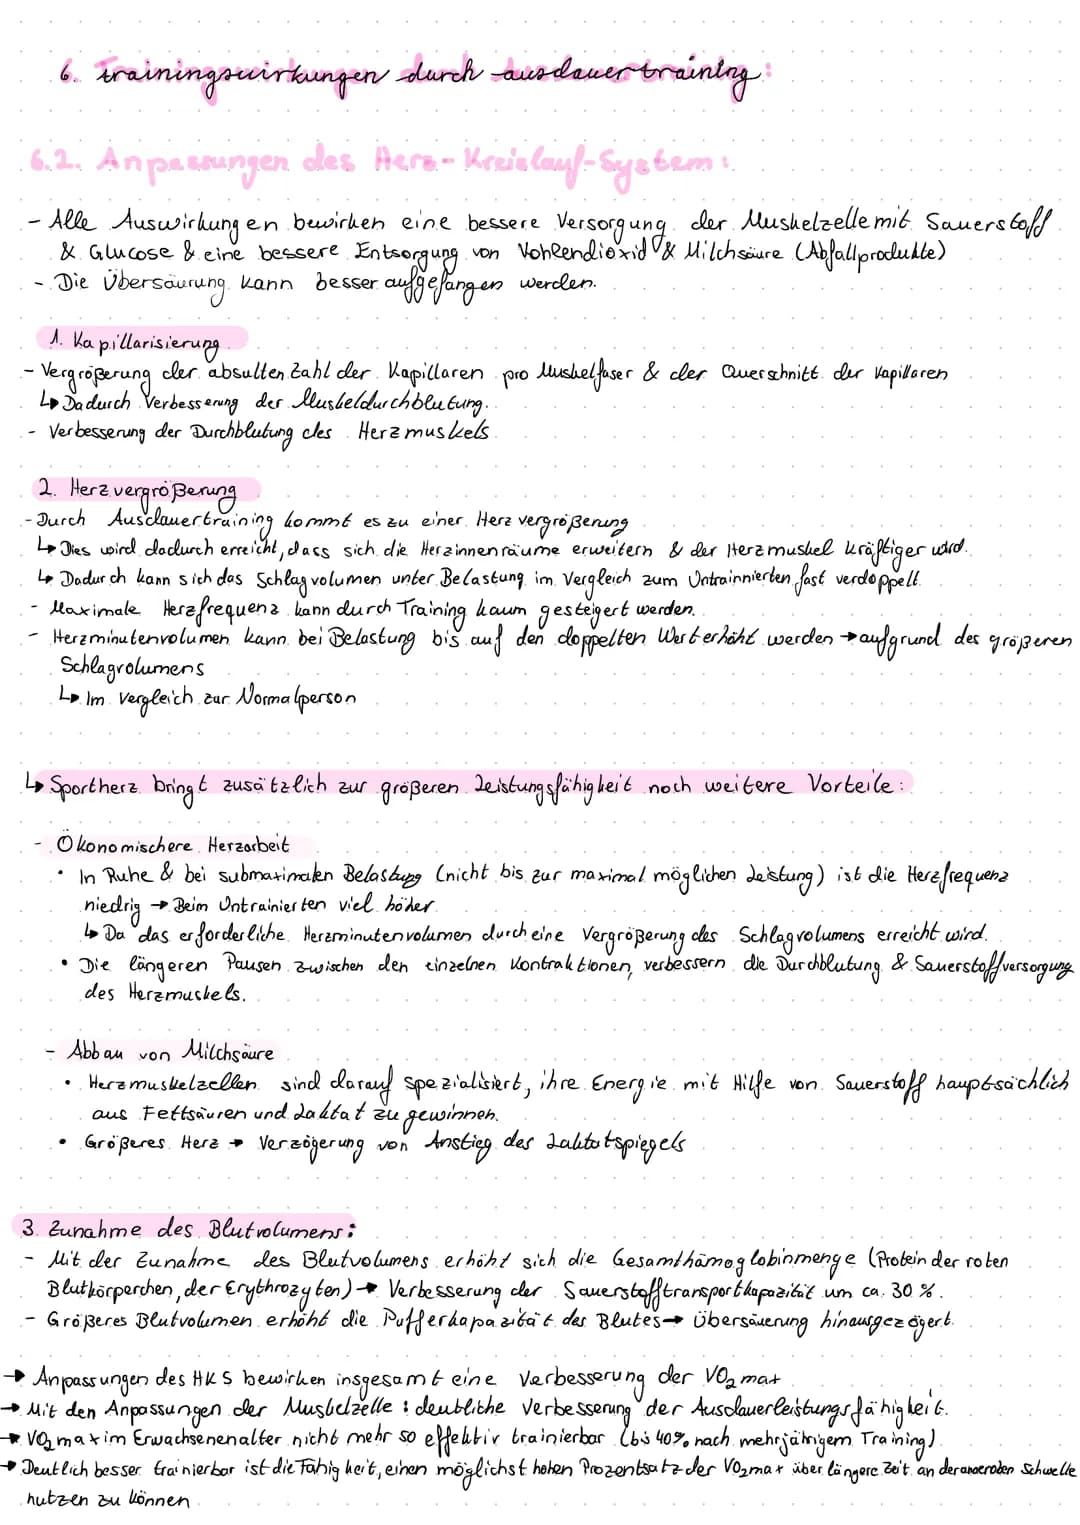 6. Trainingswirkungen durch Ausdauertraining:
6.2. Anpassungen des Herz-Kreislauf-System:
- Alle Auswirkungen bewirken eine bessere Versorgung der Muskelzelle mit Sauerstoff
& Glucose & eine bessere Entsorgung von Kohlendioxid & Milchsäure (Abfallprodukte)
- Die Übersäurung kann besser aufgefangen werden.
1. Kapillarisierung
- Vergrößerung der absulten Zahl der Kapillaren pro Muskelfaser & der Querschnitt der Kapillaren
↳ Dadurch Verbesserung der Muskeldurchblutung.
- Verbesserung der Durchblutung des Herzmuskels
2. Herzvergrößerung
- Durch Ausdauertraining kommt es zu einer Herzvergrößerung
↳ Dies wird dadurch erreicht, dass sich die Herzinnenräume erweitern & der Herzmuskel kräftiger wird.
↳ Dadurch kann sich das Schlagvolumen unter Belastung im Vergleich zum Untrainnierten fast verdoppelt.
- Maximale Herzfrequenz kann durch Training kaum gesteigert werden.
- Herzminutenvolumen kann bei Belastung bis auf den doppelten Wert erhöht werden → aufgrund des größeren
Schlagvolumens
↳ Im Vergleich zur Normalperson
↳ Sportherz bringt zusätzlich zur größeren Leistungsfähigkeit noch weitere Vorteile:
- Ökonomischere Herzarbeit
• In Ruhe & bei submaximalen Belastung (nicht bis zur maximal möglichen Leistung) ist die Herzfrequenz
niedrig → Beim Untrainierten viel höher
↳ Da das erforderliche Herzminutenvolumen durch eine Vergrößerung des Schlagvolumens erreicht wird.
• Die längeren Pausen zwischen den einzelnen Kontraktionen, verbessern die Durchblutung & Sauerstoffversorgung
des Herzmuskels.
- Abbau von Milchsäure
• Herzmuskelzellen sind darauf spezialisiert, ihre Energie mit Hilfe von Sauerstoff hauptsächlich
aus Fettsäuren und Laktat zu gewinnen.
• Größeres Herz → Verzögerung von Anstieg des Laktatspiegels
3. Zunahme des Blutvolumens:
- Mit der Zunahme des Blutvolumens erhöht sich die Gesamthämoglobinmenge (Protein der roten
Blutkörperchen, der Erythrozyten) → Verbesserung der Sauerstofftransportkapazität um ca. 30 %.
- Größeres Blutvolumen erhöht die Pufferkapazität des Blutes → Übersäuerung hinausgezögert.
→ Anpassungen des HKS bewirken insgesamt eine Verbesserung der VO₂ max
→ Mit den Anpassungen der Muskelzelle : deutliche Verbesserung der Ausdauerleistungsfähigkeit.
→ VO₂ max im Erwachsenenalter nicht mehr so effektiv trainierbar (bis 40% nach mehrjährigem Training)
→ Deutlich besser trainierbar ist die Fähigkeit, einen möglichst hohen Prozentsatz der VO₂max über längere Zeit an der anaeroben Schwelle
nutzen zu können